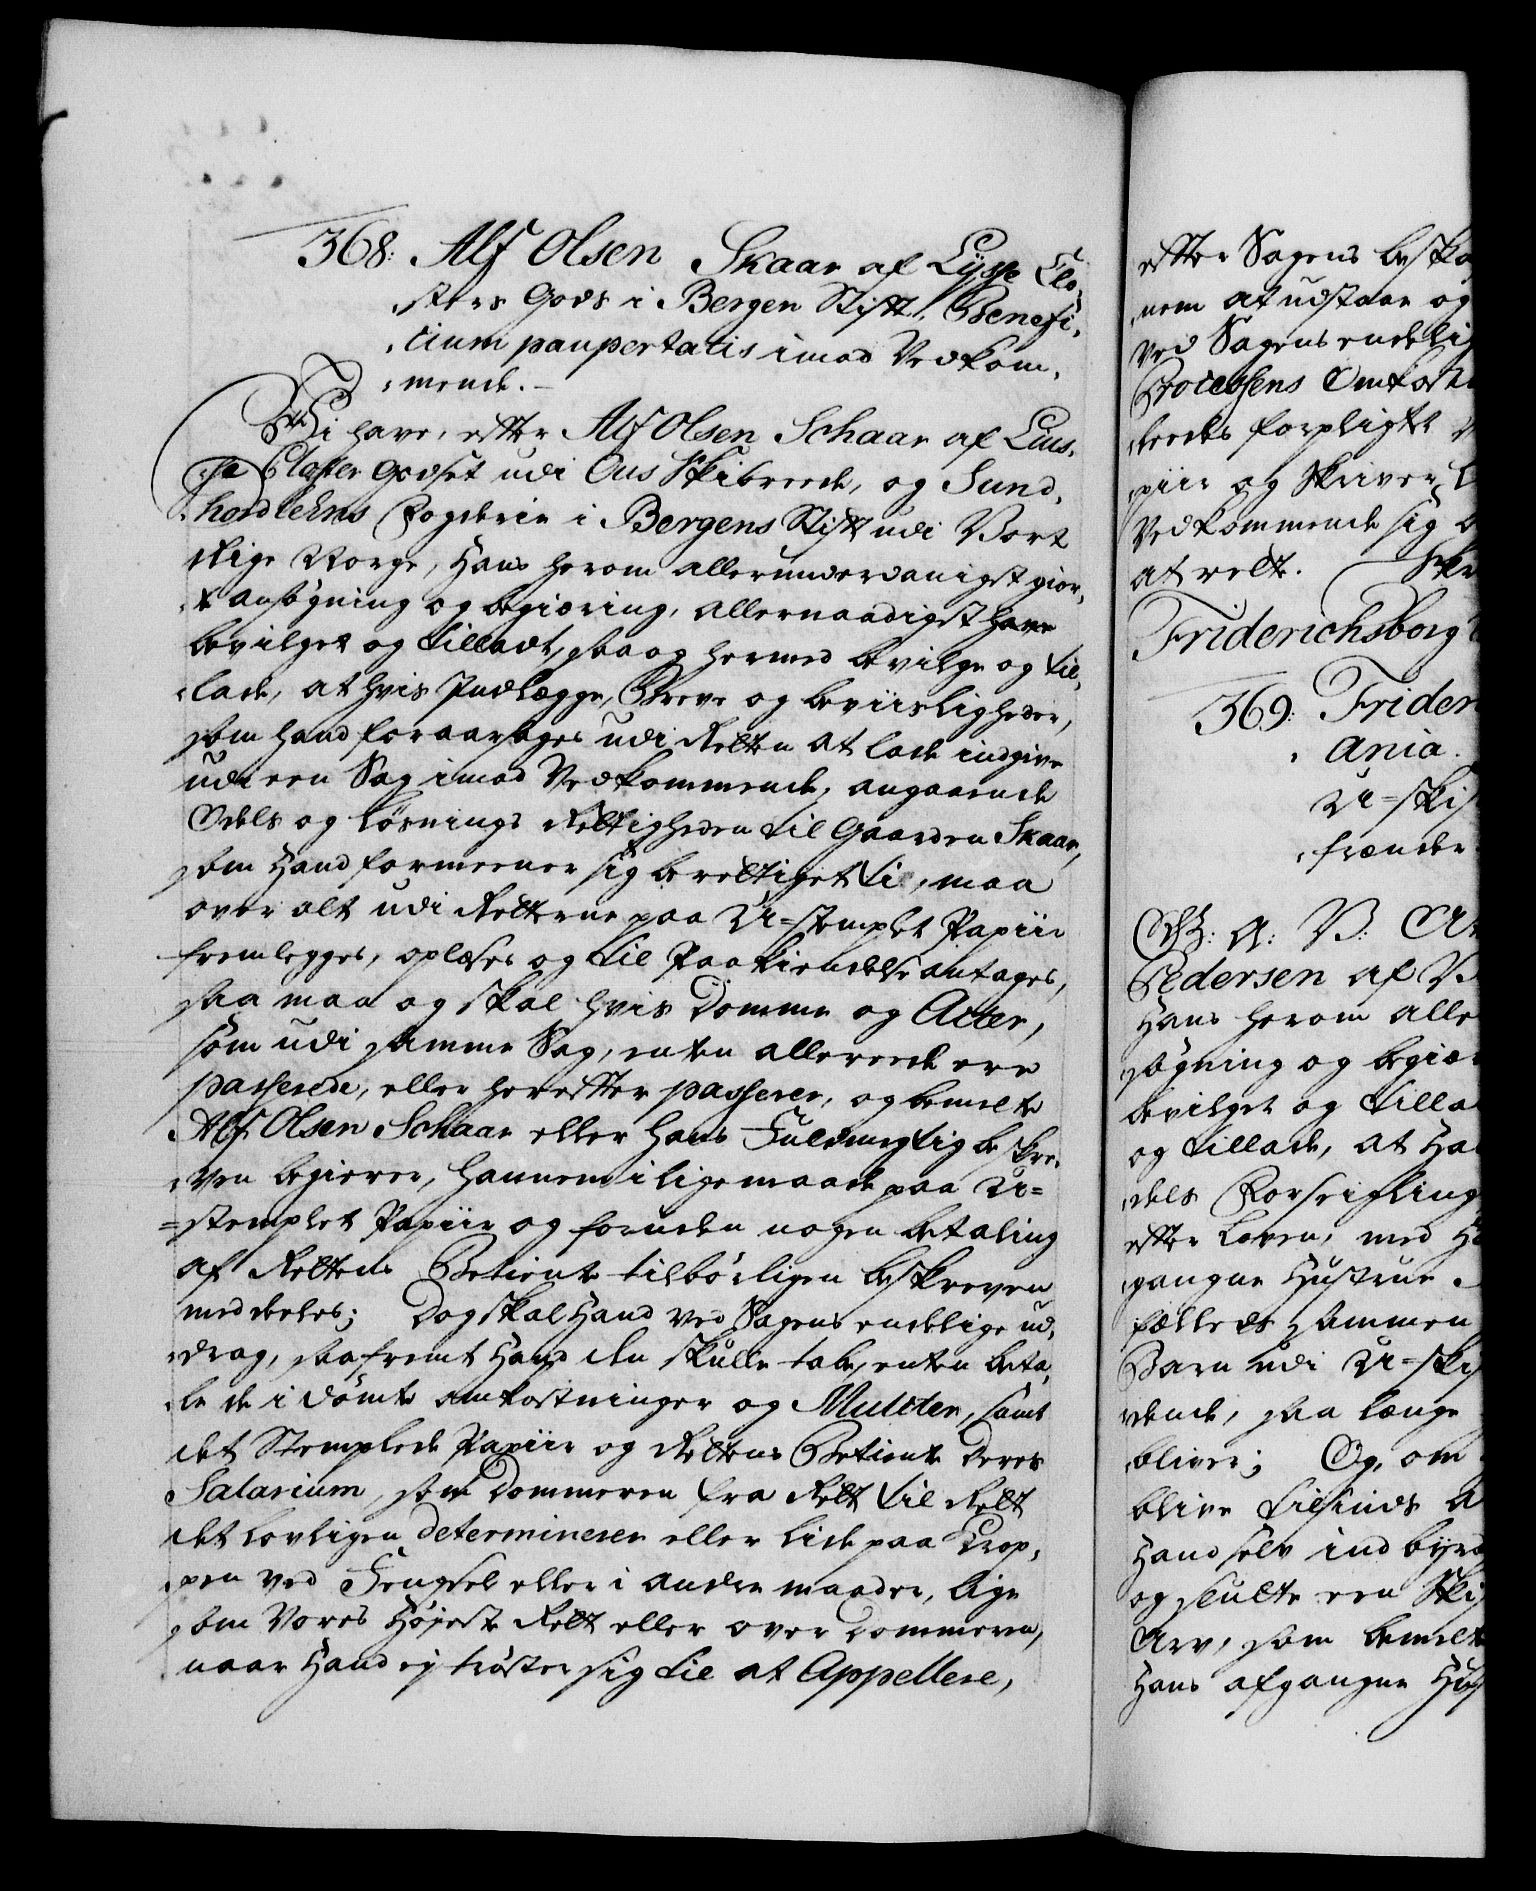 368: Alf Olsen Skaar af Lysse Clo-
sters Gods i Bergen Stift, Benefi-
cium paupertatis imod Vedkom-
mende.
Wi have, efter Alf Olsen Schaar af Lius-
se Closter Godset udi Ous Skibrede, og Sund-
hordlehns Fogderie i Bergens Stift udi Vort
Rige Norge, Hans herom allerunderdanigst gior-
te ansøgning og begiæring, allernaadigst have
bevilget og tilladt, saa og hermed bevilge og til-
lade, at hvis Indlægge, Breve og beviisligheder,
som hand foraarsages udi Retten at lade indgive
udi een Sag imod Vedkommende, angaaende
Odels og løsnings Rettigheden til Gaarden Skaar,
som Hand formeener sig berettiget til, maa
over alt udi Retterne paa U-stemplet Papiir
fremlegges, oplæses og til Paakiendelse antages,
saa maa og skal hvis Domme og Acter,
som udi samme Sag, enten allereede ere
passerede, eller herefter passerer, og bemelte
Alf Olsen Schaar eller hans Fuldmegtig beskre-
ven begierer, hannem i ligemaade paa U-
stemplet Papiir og foruden nogen betaling
af Rettens Betiente tilbørligen beskreven
meddeeles; Dog skal Hand ved Sagens endelige ud-
drag, saafremt Hand den skulle tabe, enten beta-
le de idømte omkostninger og Mulcter, samt
det Stemplede Papiir og Rettens Betiente Deres
Salarium, som Dommeren fra Rett til Rett
det lovligen determinerer eller lide paa Krop-
pen ved Fengsel eller i andre maader, lige
som Vores Højeste Rett eller over Dommeren,
naar Hand ej trøster sig til at Appellere,
efter Sagens beska
nem at udstaae og
ved Sagens endelig
Processens Omkost
leedes forpligte
piir og Skriver
Vedkommende sig
at rette. Skr
Friderichsborg
369: Frider
ania
U-ski
frænder
C. 6: A: V: 
Pedersen af V
Hans herom alle
søgning og begiæ
bevilget og tilla
og tillade, at Ha
dels Forseigling
efter Loven, med H
gangne Hustrue
fælleds sammen
Barn udi U-ski
dende, saa længe
bliver; Og, om
blive tilsinds
Hand selv ind byrd
og slutte een Ski
Arv, som bemelte
Hans afgangne Hus